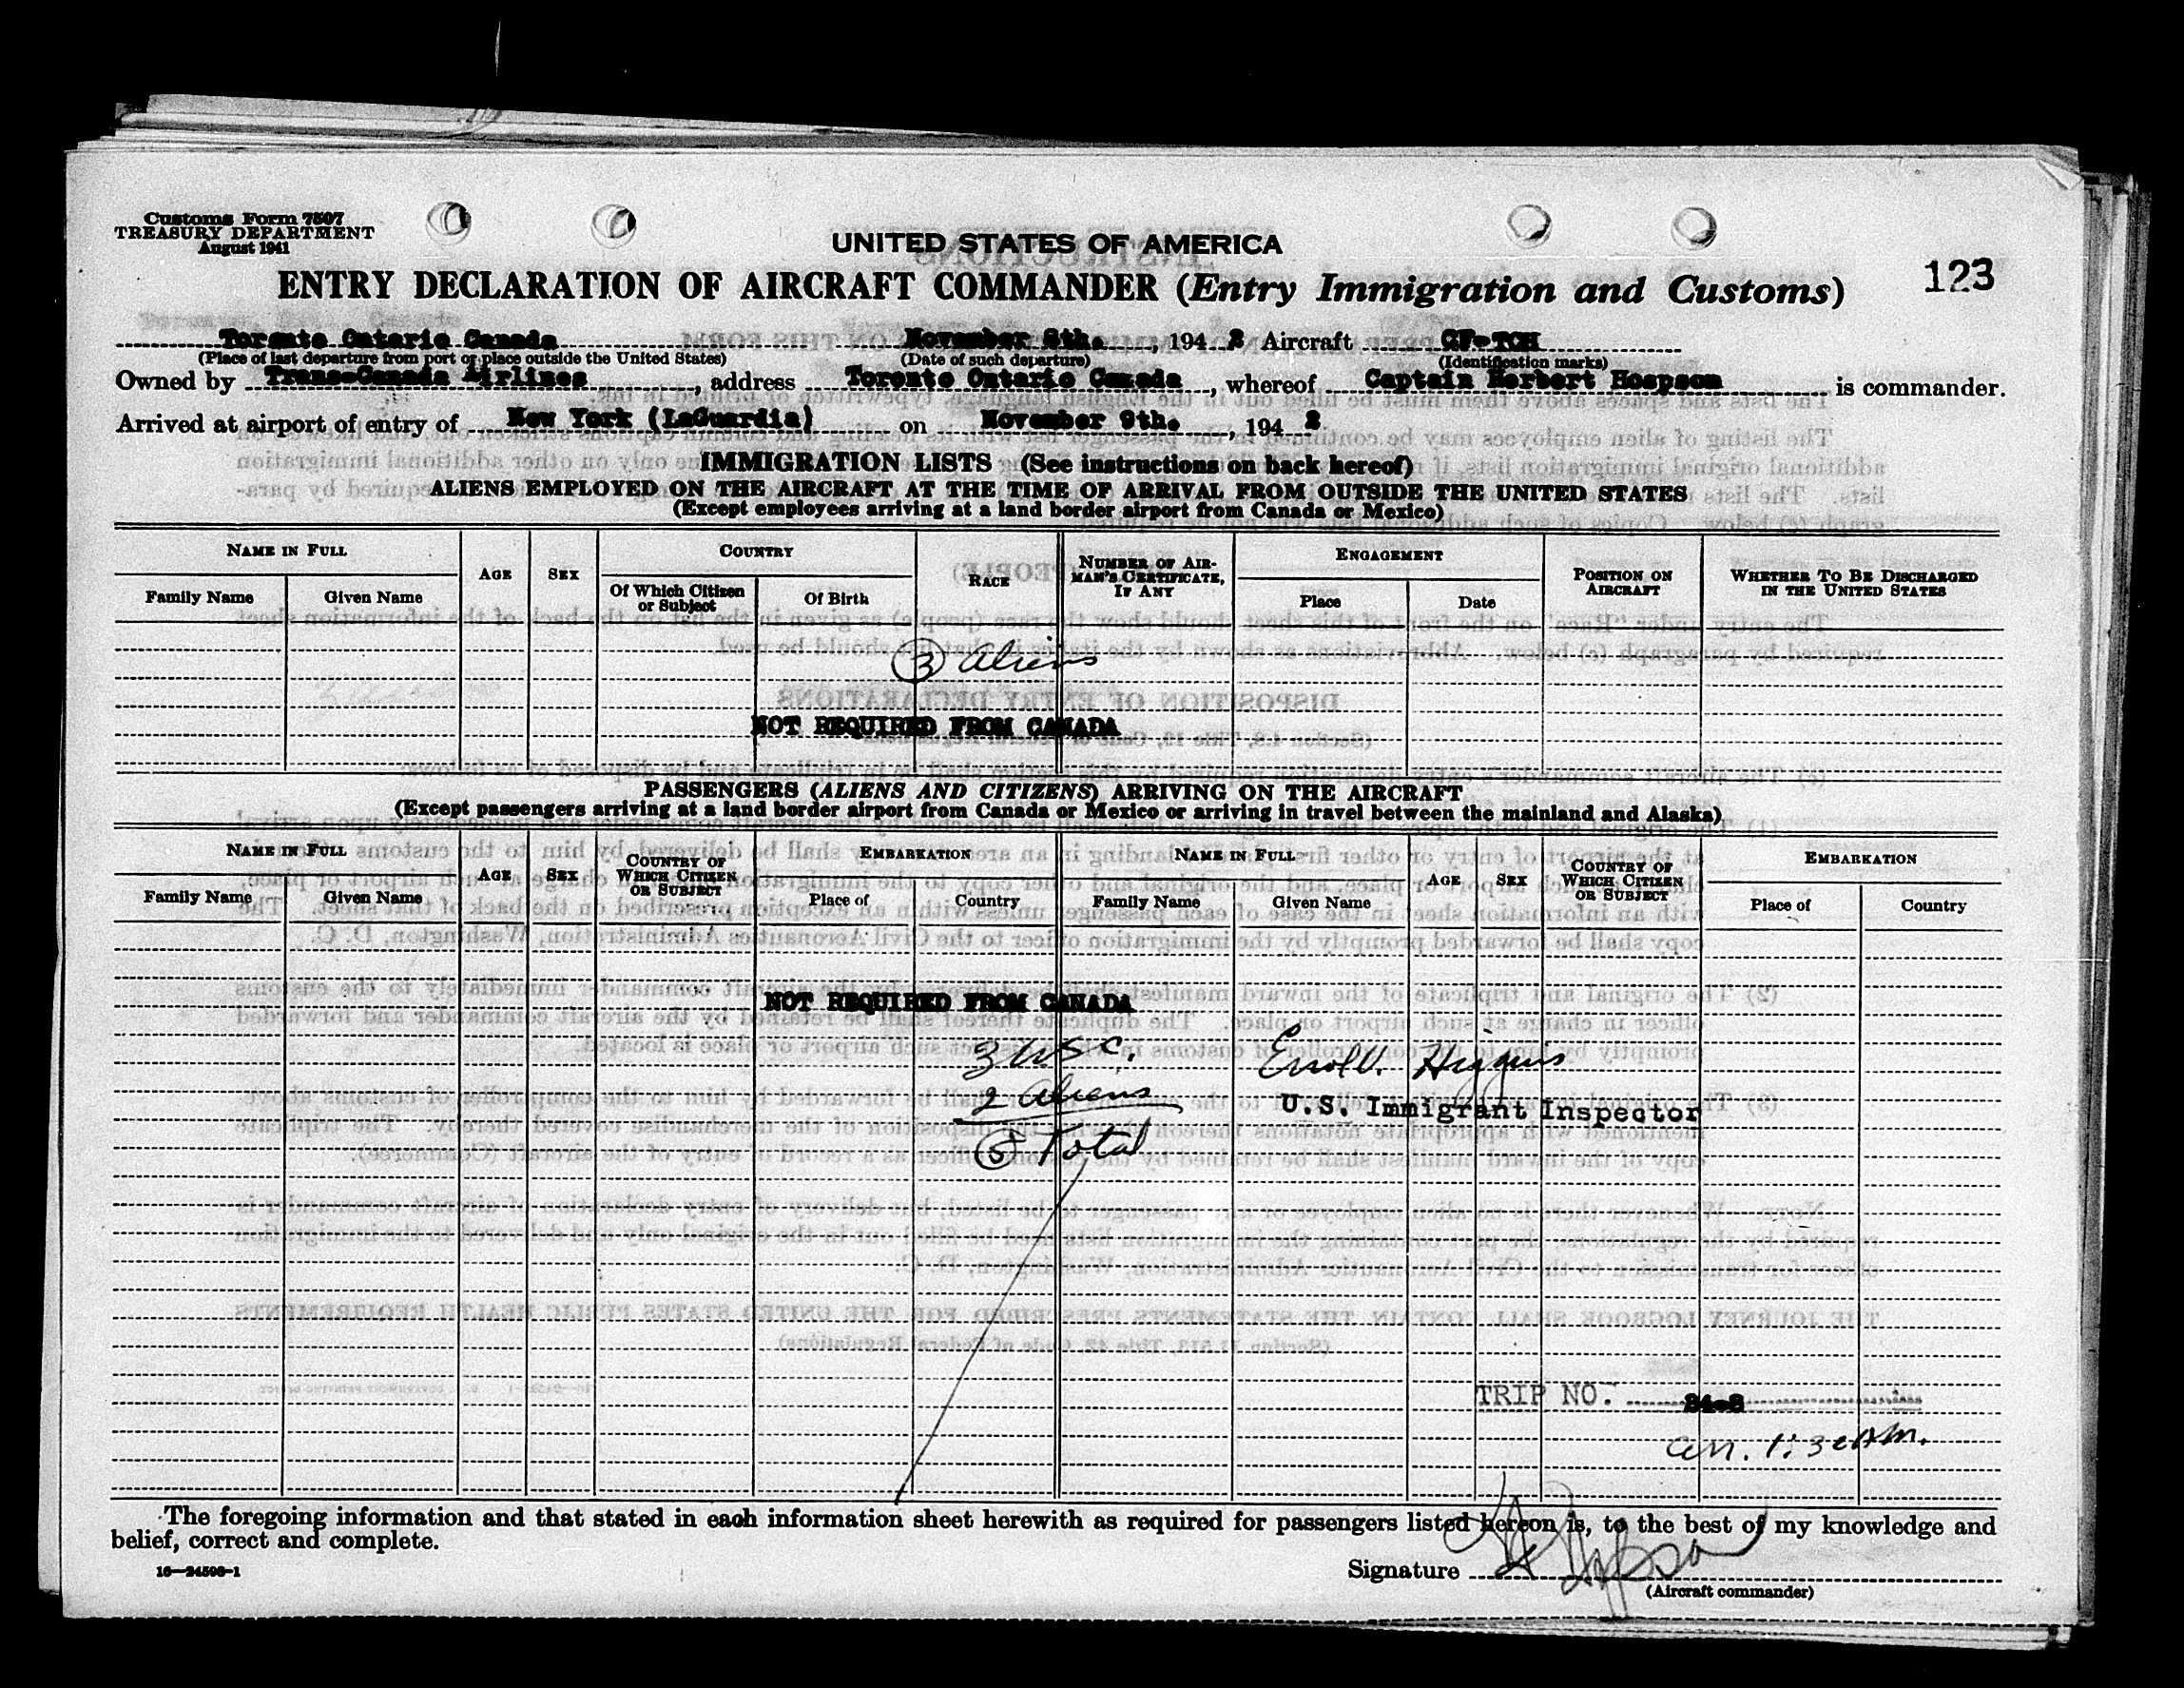 Customs Form 7507
TREASURY DEPARTMENT
August 1941
UNITED STATES OF AMERICA
ENTRY DECLARATION OF AIRCRAFT COMMANDER (Entry Immigration and Customs)
123
Toronto Ontario Canada November 8th., 1942 Aircraft CF-TCH
(Place of last departure from port or place outside the United States) (Date of such departure) (Identification marks)
Owned by Trans-Canada Airlines, address Toronto Ontario Canada, whereof Captain Herbert Hospson is commander.
Arrived at airport of entry of New York (LaGuardia) on November 9th., 1942
IMMIGRATION LISTS (See instructions on back hereof)
ALIENS EMPLOYED ON THE AIRCRAFT AT THE TIME OF ARRIVAL FROM OUTSIDE THE UNITED STATES
(Except employees arriving at a land border airport from Canada or Mexico)
NAME IN FULL AGE SEX COUNTRY RACE NUMBER OF AIRMAN'S CERTIFICATE, IF ANY ENGAGEMENT POSITION ON AIRCRAFT WHETHER TO BE DISCHARGED IN THE UNITED STATES
Family Name Given Name Of Which Citizen or Subject Of Birth Place Date
3 Aliens
NOT REQUIRED FROM CANADA
PASSENGERS (ALIENS AND CITIZENS) ARRIVING ON THE AIRCRAFT
(Except passengers arriving at a land border airport from Canada or Mexico or arriving in travel between the mainland and Alaska)
NAME IN FULL AGE SEX COUNTRY OF WHICH CITIZEN OR SUBJECT EMBARKATION NAME IN FULL AGE SEX COUNTRY OF WHICH CITIZEN OR SUBJECT EMBARKATION
Family Name Given Name Place of Country Family Name Given Name Place of Country
NOT REQUIRED FROM CANADA
3 USC. Errol V. Higgins
2 Aliens U.S. Immigrant Inspector
5 Total
TRIP NO. 24-8
arr. 1:30 AM.
The foregoing information and that stated in each information sheet herewith as required for passengers listed hereon is, to the best of my knowledge and
belief, correct and complete.
16—24598-1
Signature
(Aircraft commander)